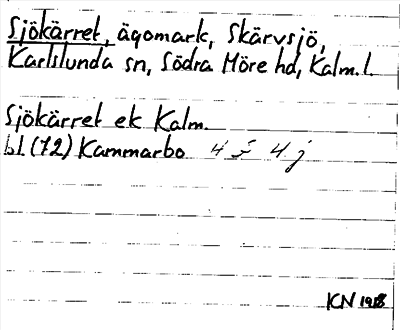 Sjökärret, ägomark, Skärvsjö,
Karlslunda sn, Södra Möre hd, Kalm. l.
Sjökärret ek Kalm.
bl. (72) Kammarbo 4 F 4 j
KN